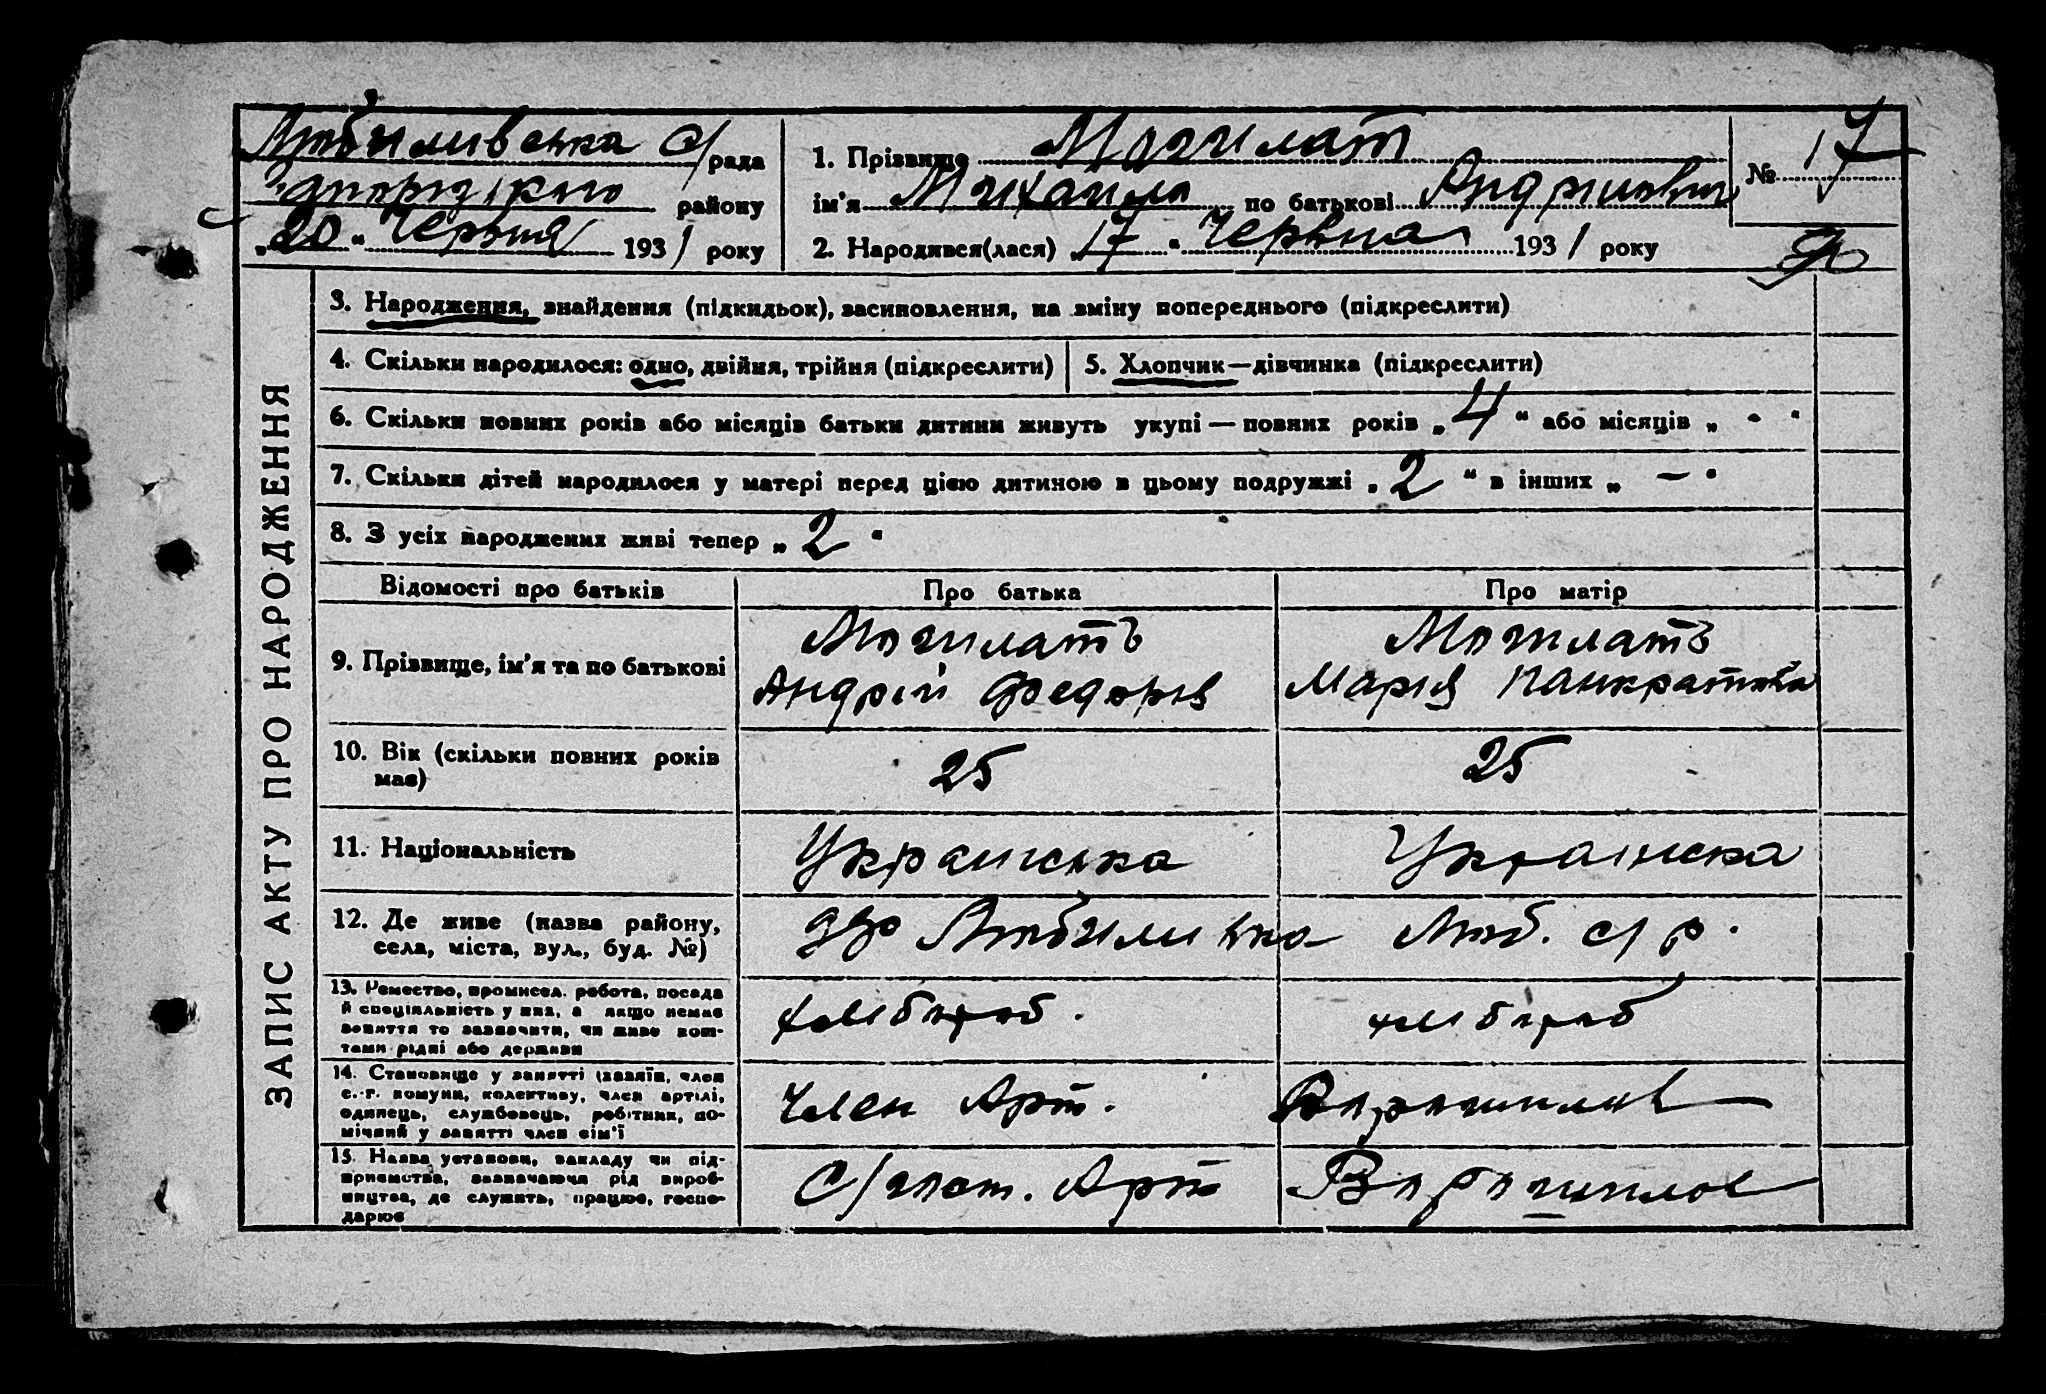 Любимивська С/рада
Запорізького району
„20“ Червня 1931 року
1. Прізвище Могилат
ім'я Михайло по батькові Андрійович
№ 17
2. Народився(лася) 17 “ Червня 1931 року
ЗАПИС АКТУ ПРО НАРОДЖЕННЯ
3. Народження, знайдення (підкидьок), засиновлення, на зміну попереднього (підкреслити)
4. Скільки народилося: одно, двійня, трійня (підкреслити)
5. Хлопчик—дівчинка (підкреслити)
6. Скільки повних років або місяців батьки дитини живуть укупі — повних років „4“ або місяців „ - “
7. Скільки дітей народилося у матері перед цією дитиною в цьому подружжі „2“ в інших „ – “
8. З усіх народжених живі тепер „2“
Відомості про батьків Про батька Про матір
9. Прізвище, ім'я та по батькові
Могилатъ
Андрій Федорів
Могилатъ
Марія Панкратівна
10. Вік (скільки повних років
має)
25
25
11. Національність
Українська
Українська
12. Де живе (назва району,
села, міста, вул., буд. №)
Люб. с/р.
13. Ремество, промисел. робота, посада
й спеціяльність у них, а якщо немає
заняття то зазначити, чи живе кош-
тами рідні або держави
хлібороб.
хлібороб
14. Становище у занятті (хазяїн, член
с.-г. комуни, колективу, член артілі,
одинець, службовець, робітник, по-
мічний у занятті член сім'ї
Член Арт.
Ворошилов
15. Назва установи, закладу чи під-
приємства, зазначаючи рід вироб-
ництва, де служить, працює, госпо-
дарює
С/госп. Арт
Ворошилов